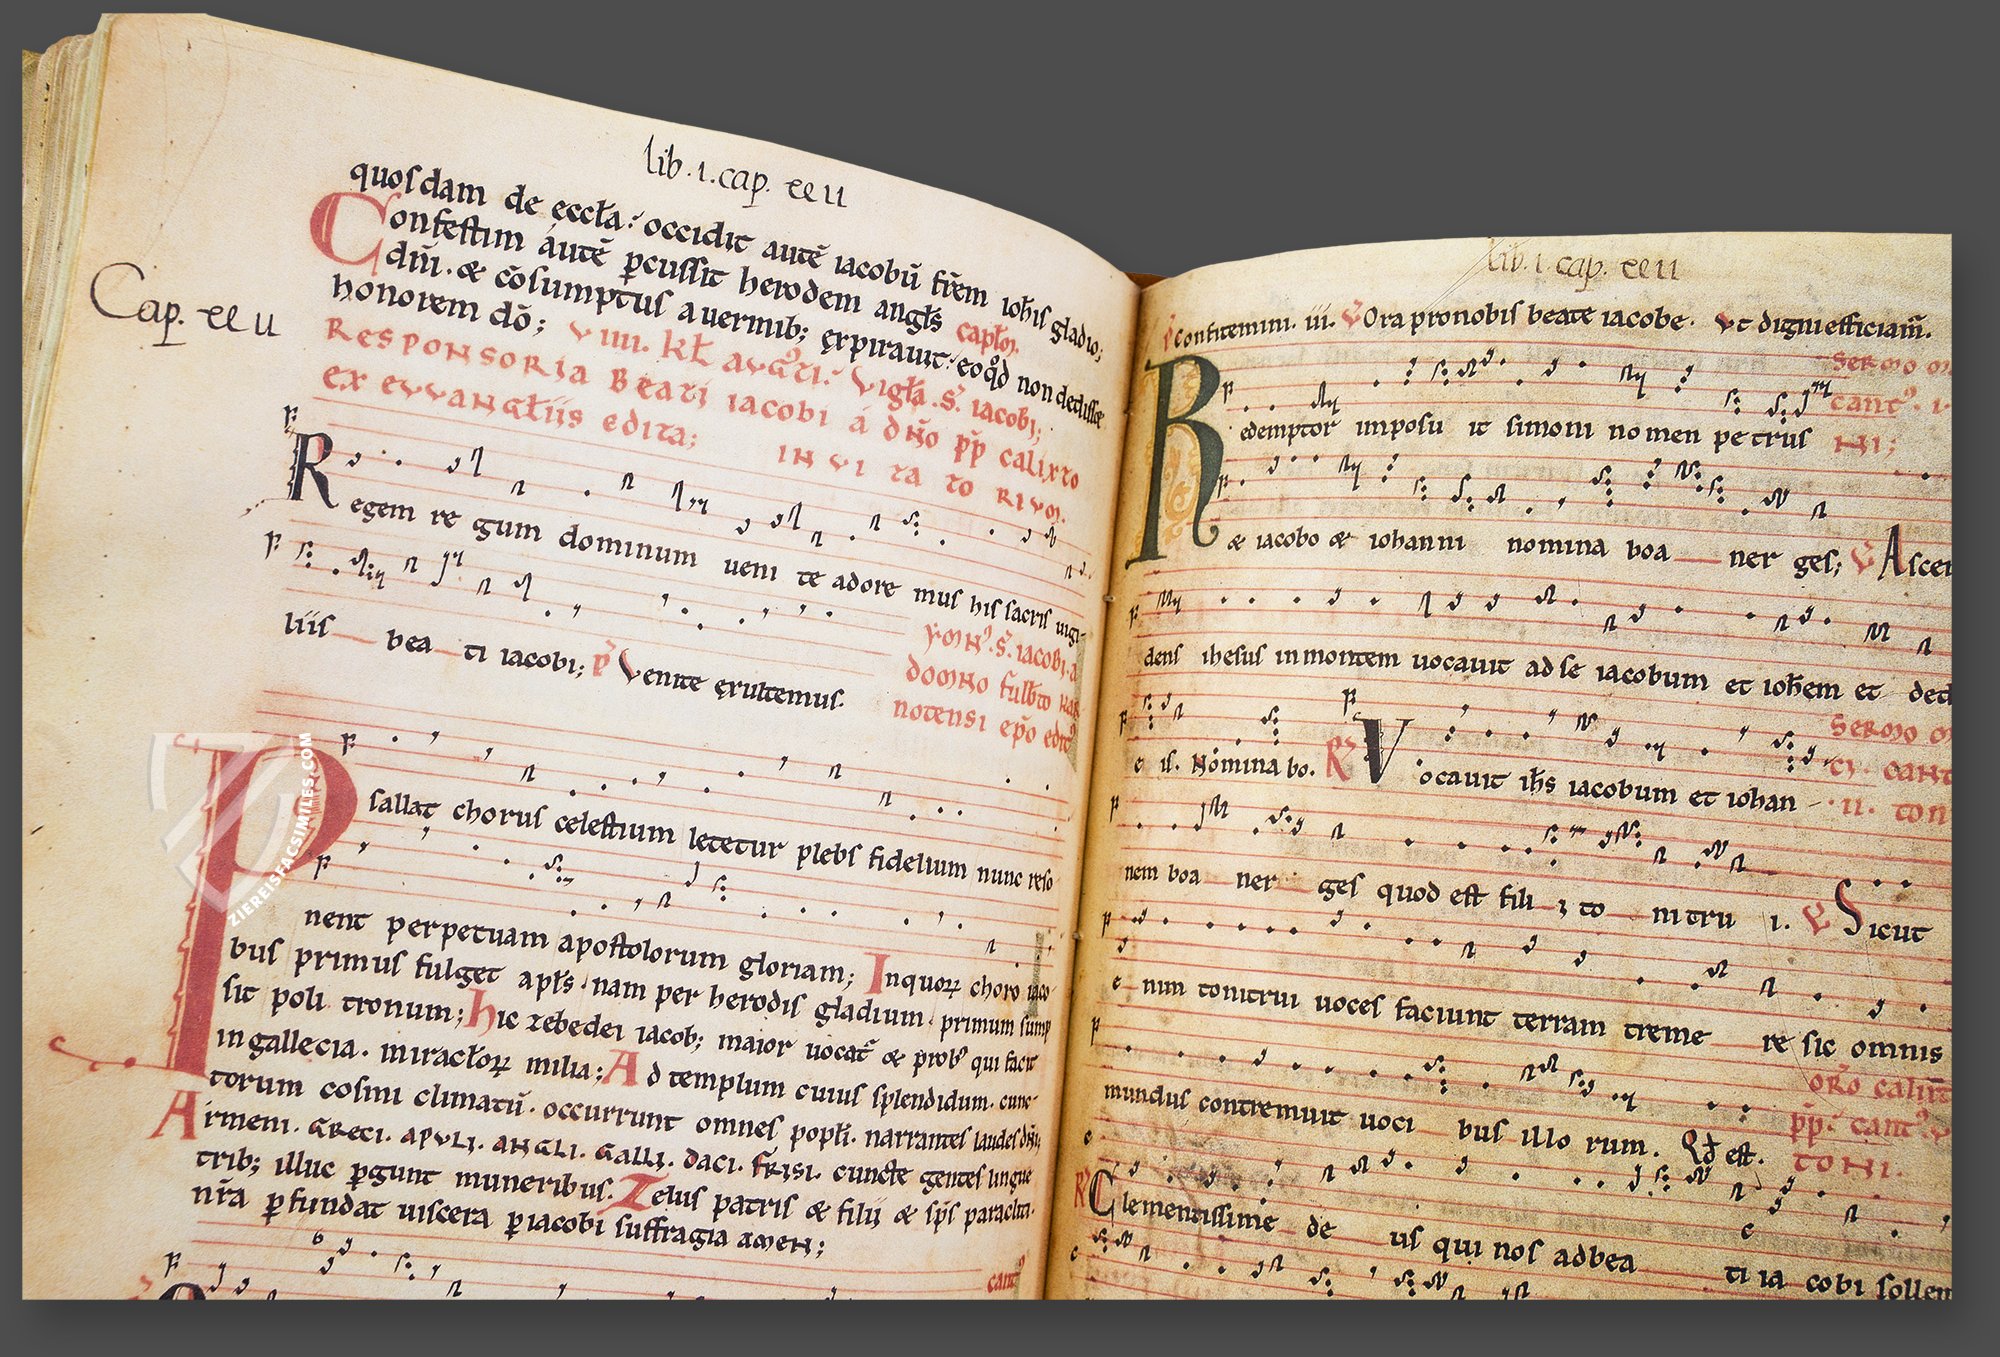 lib. 1. cap. xxii
quosdam de eccła: occidit autē iacobū fr̄em ioħis gladio;
Confestim autē ꝑcussit herodem angłs
dn̄i. & cōsumptus a uermib; expirauit: eo qđ non dedisset
honorem dō; capłm.
Cap. xxii
VIIII. kł augͭi. Vigła. s. iacobi;
Responsoria Beati iacobi a dn̄o pp̄ calixto
ex evvangłiis edita; INVITATORIVM.
Regem regum dominum uenite adoremus his sacris uigi-
liis beati iacobi; p̄ Venite exultemus.
ymnꝰ. s. iacobi. a
domno fulb̄to kar
notensi ep̄o editꝰ
Psallat chorus celestium letetur plebs fidelium nunc reso
nent perpetuam apostolorum gloriam; In quoꝝ choro iaco
bus primus fulget apłs. nam per herodis gladium. primum sump
sit poli tronum; hic zebedei iacob; maior uocat̄ & probꝰ qui facit
in gallecia. miracłoꝝ milia; Ad templum cuius splendidum. cunc-
torum cosmi climatū. occurrunt omnes popłi. narrantes laudes dn̄i;
Armeni. greci. apuli. angli. galli. daci. frisi. cuncte gentes lingue
trib; illuc ꝑgunt muneribus. Zelus patris & filii & sp̄s paracliti.
nr̄a ꝑfundat uiscera ꝑ iacobi suffragia amen;
cantꝰ
ZIEREISFACSIMILES.COM
lib. 1. cap. xxii
p̄ Confitemini. iii. V Ora pro nobis beate iacobe. Vt digni efficiam̄.
Sermo
cantꝰ. i.
Redemptor imposuit simoni nomen petrus
ni;
& iacobo & iohanni nomina boanerges; V Ascen
dens ihesus in montem uocauit ad se iacobum et ioħem et ded
eis. Nomina bo. R Vocauit iħs iacobum et iohan
Sermo
ci. cant
ii. ton
nem boanerges quod est filii tonitrui. V Sicut
enim tonitrui uoces faciunt terram tremere sic omnis
mundus contremuit uocibus illorum. Qđ est.
Oro calixti
pp̄. cantꝰ
toni.
R Clementissime deus qui nos ad beati iacobi sollem